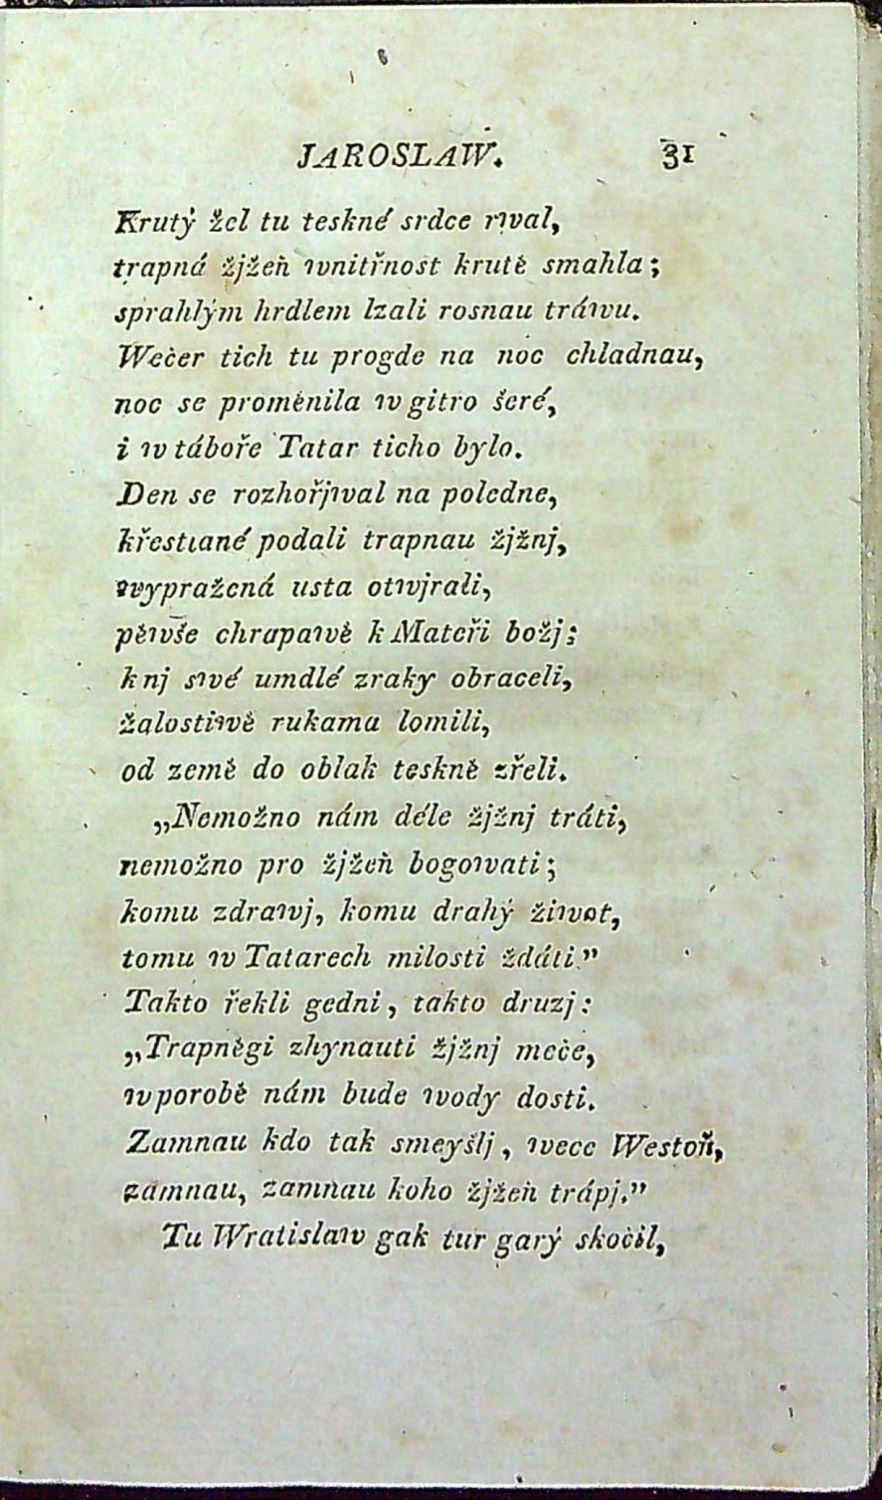 JAROSLAW. 31
Krutý žel tu teskné srdce rwal,
trapná žjžeň wnitřnost krutě smahla;
sprahlým hrdlem lzali rosnau tráwu.
Wečer tich tu progde na noc chladnau,
noc se proměnila w gitro šeré,
i w táboře Tatar ticho bylo.
Den se rozhořjwal na poledne,
křestiané podali trapnau žjžnj,
wypražená usta otwjrali,
pěwše chrapawě k Mateři božj;
k nj swé umdlé zraky obraceli,
žalostiwě rukama lomili,
od země do oblak teskně zřeli.
„Nemožno nám déle žjžnj tráti,
nemožno pro žjžeň bogowati;
komu zdrawj, komu drahý žiwot,
tomu w Tatarech milosti ždáti.”
Takto řekli gedni, takto druzj:
„Trapněgi zhynauti žjžnj meče,
w porobě nám bude wody dosti.
Zamnau kdo tak smeyšlj, wece Westoň,
zamnau, zamnau koho žjžeň trápj.”
Tu Wratislaw gak tur garý skočil,